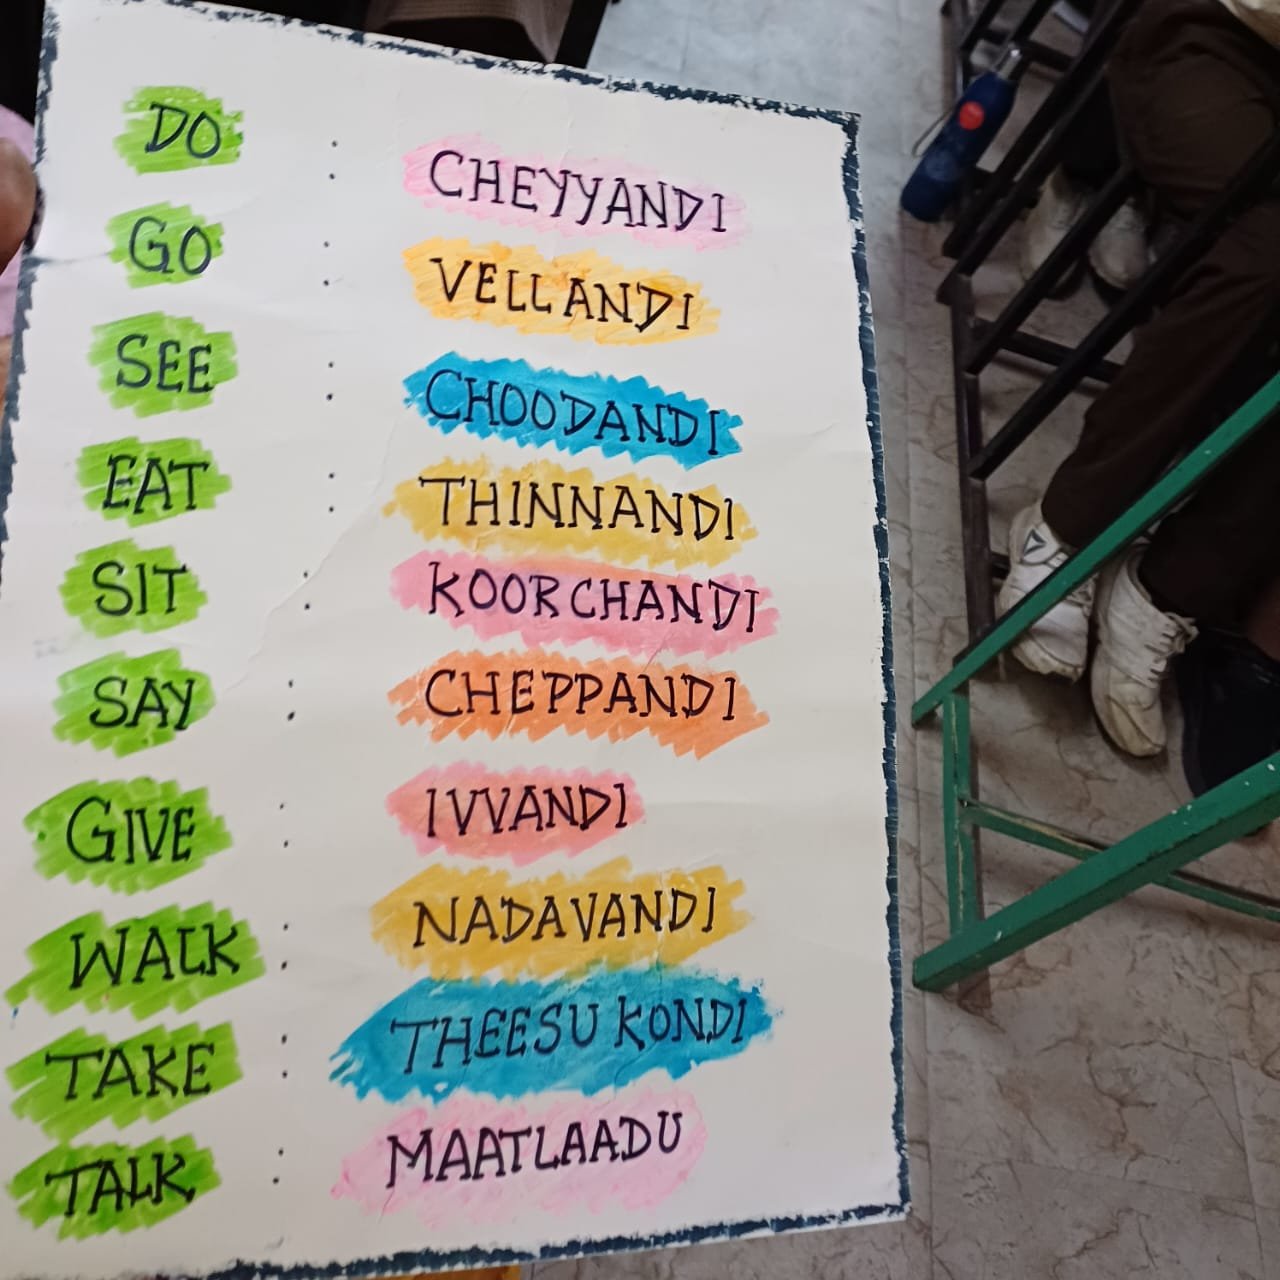 DO : CHEYYANDI
GO : VELLANDI
SEE : CHOODANDI
EAT : THINNANDI
SIT : KOORCHANDI
SAY : CHEPPANDI
GIVE : IVVANDI
WALK : NADAVANDI
TAKE : THEESU KONDI
TALK : MAATLAADU